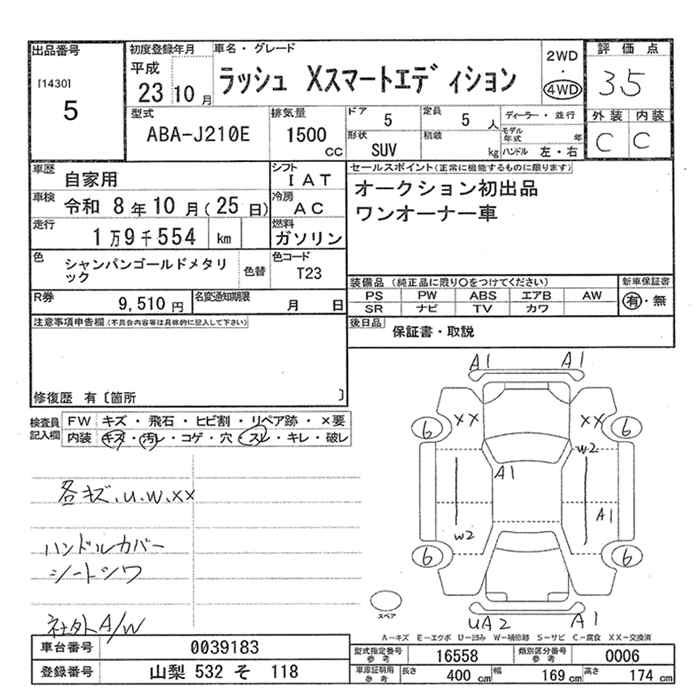 出品番号
[1430]
5
初度登録年月
平成
23年10月
車名・グレード
ラッシュ Xスマートエディション
2WD
・
4WD
評価点
35
型式
ABA-J210E
排気量
1500
CC
ドア
5
定員
5 人
形状
SUV
積載
kg
ディーラー・並行
モデル年式 年
ハンドル 左・右
外装 内装
C C
車歴
自家用
シフト
IAT
車検
令和 8年10月(25日)
冷房
AC
走行
1万9千554 km
燃料
ガソリン
セールスポイント(正常に機能するものに限ります)
オークション初出品
ワンオーナー車
色
シャンパンゴールドメタリック
色替
色コード
T23
R券
9,510円
名変通知期限
月 日
装備品(純正品に限り○をつけてください)
PS PW ABS エアB AW
SR ナビ TV カワ
新車保証書
有・無
後日品
保証書・取説
注意事項申告欄(不具合内容等は具体的に記入して下さい)
修復歴 有〔箇所 〕
検査員記入欄
FW キズ・飛石・ヒビ割・リペア跡・×要
内装 キズ・汚レ・コゲ・穴・スレ・キレ・破レ
各キズ、U、W、XX
ハンドルカバー
シートシワ
社外A/W
A1 A1
XX XX
6 6
W2
A1
A1
W2
6 6
スペア
UA2 A1
A-キズ E-エクボ U-凹み W-補修跡 S-サビ C-腐食 XX-交換済
車台番号
0039183
登録番号
山梨 532 そ 118
型式指定番号
参考
16558
類別区分番号
参考
0006
車庫証明用
参考
長さ
400 cm
幅
169 cm
高さ
174 cm